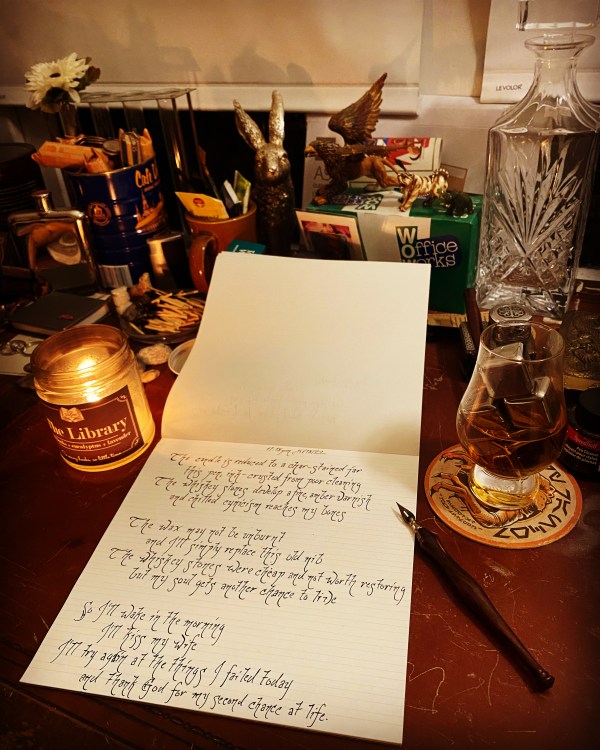 LEVOLOR
Café
Office
works
The Library
eucalyptus + lavender
The candle is reduced to a char-stained jar
this pen, ink-crusted from poor cleaning
The whiskey stones develop a fine amber varnish
and chilled cynicism reaches my bones
The wax may not be unburnt
and I'll simply replace this old nib
The whiskey stones were cheap and not worth restoring
but my soul gets another chance to live
So I'll wake in the morning
I'll kiss my wife
I'll try again at the things I failed today
and thank God for my second chance at life.